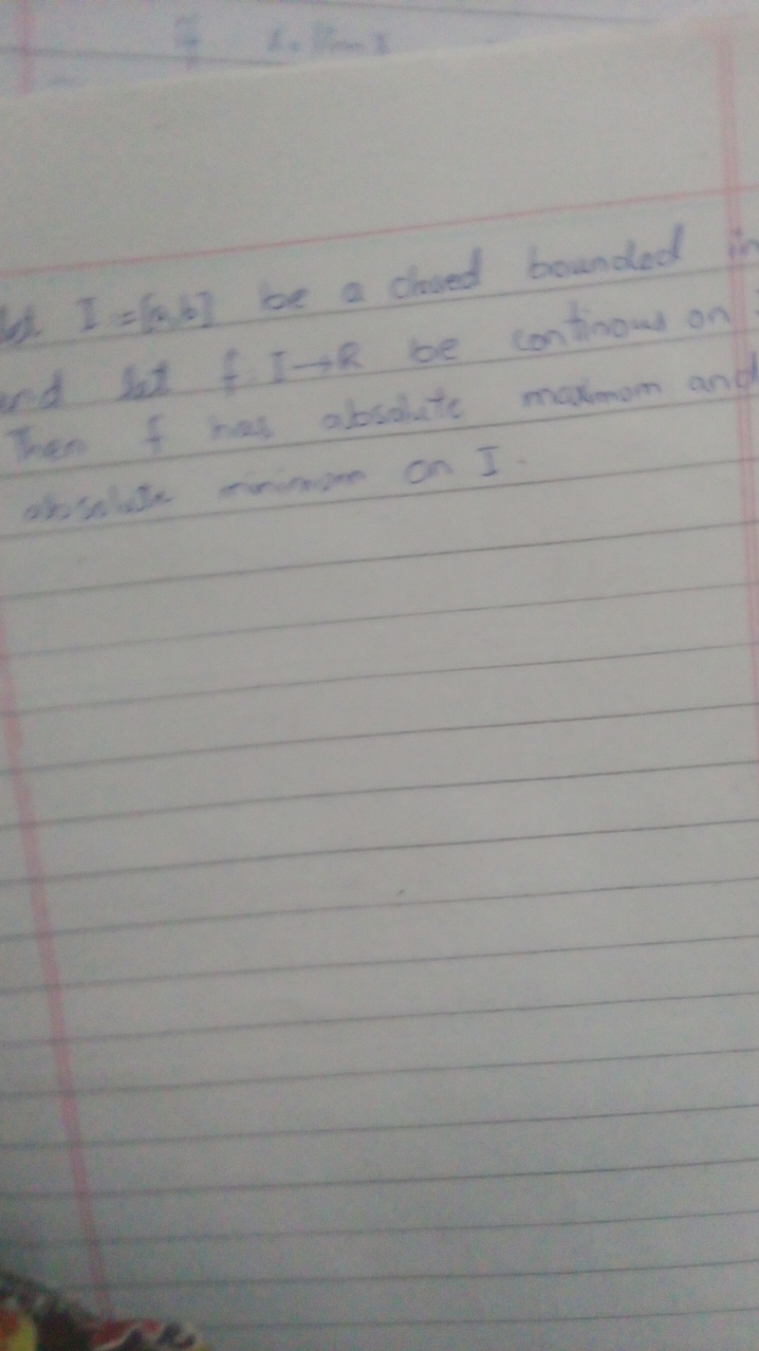 let I = [a,b] be a closed bounded in
and let f: I→R be continous on
Then f has absolute maximom and
absolute minimom on I.